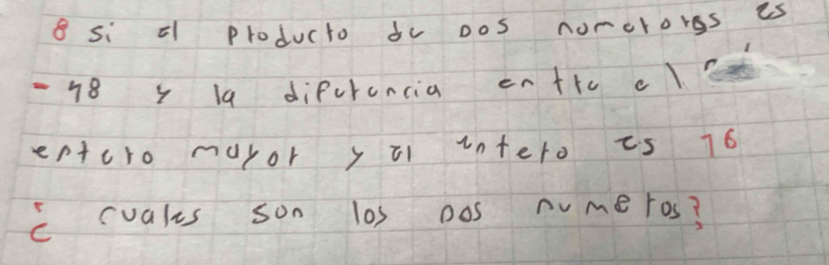 8 si el producto de Dos nomeros es
- 48 y la diferencia entre el
entero mayor y el entero es 16
¿ cuales son los Dos numeros?